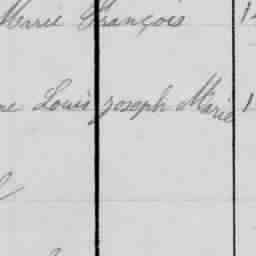 Marie François 1
ne Louis Joseph Marie 1